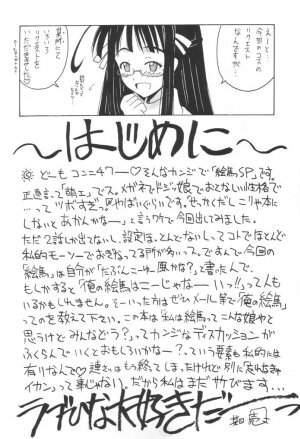 えーと…
今回のコスの
リクエスト
なんですが…
某所にて
いろいろ
リクエストを
いただきました♡
〜はじめに〜
どーもコンニチワー♡そんなカンジで「絵馬SP」です。
正直言って「萌エ」でス。メガネでドジっ娘で、おとなしい性格で
…ってツボすぎっ。
しないとあかんかなー…と言うワケで今回出してみました。
ただ2話しか出てないし、設定は、とんでーないしってコトでほとんど
私的モーソーでおぎなってる所が高いっス。ですんで、今回の
「絵馬」は自分が「たぶんこーゆー風かな?」と書ったんで、
もしかすると「俺の絵馬はこーじゃなーいっ!!」って人も
いるかもしれません。そーいった方はぜひメール等で「俺の絵馬」
ってのを教えて下さい。この本は、私は絵馬ってこんな娘やと
思うけどみんなどう?ってカンジなディスカッションが
ふくらんでいくとおもしろいかなー?、っていう要素も私的には
有りなんで♡連さいはもう終ってしまったけれど別に
イカン」って事じゃない。だから私はまだやります…
ラブひな大好きだーっ